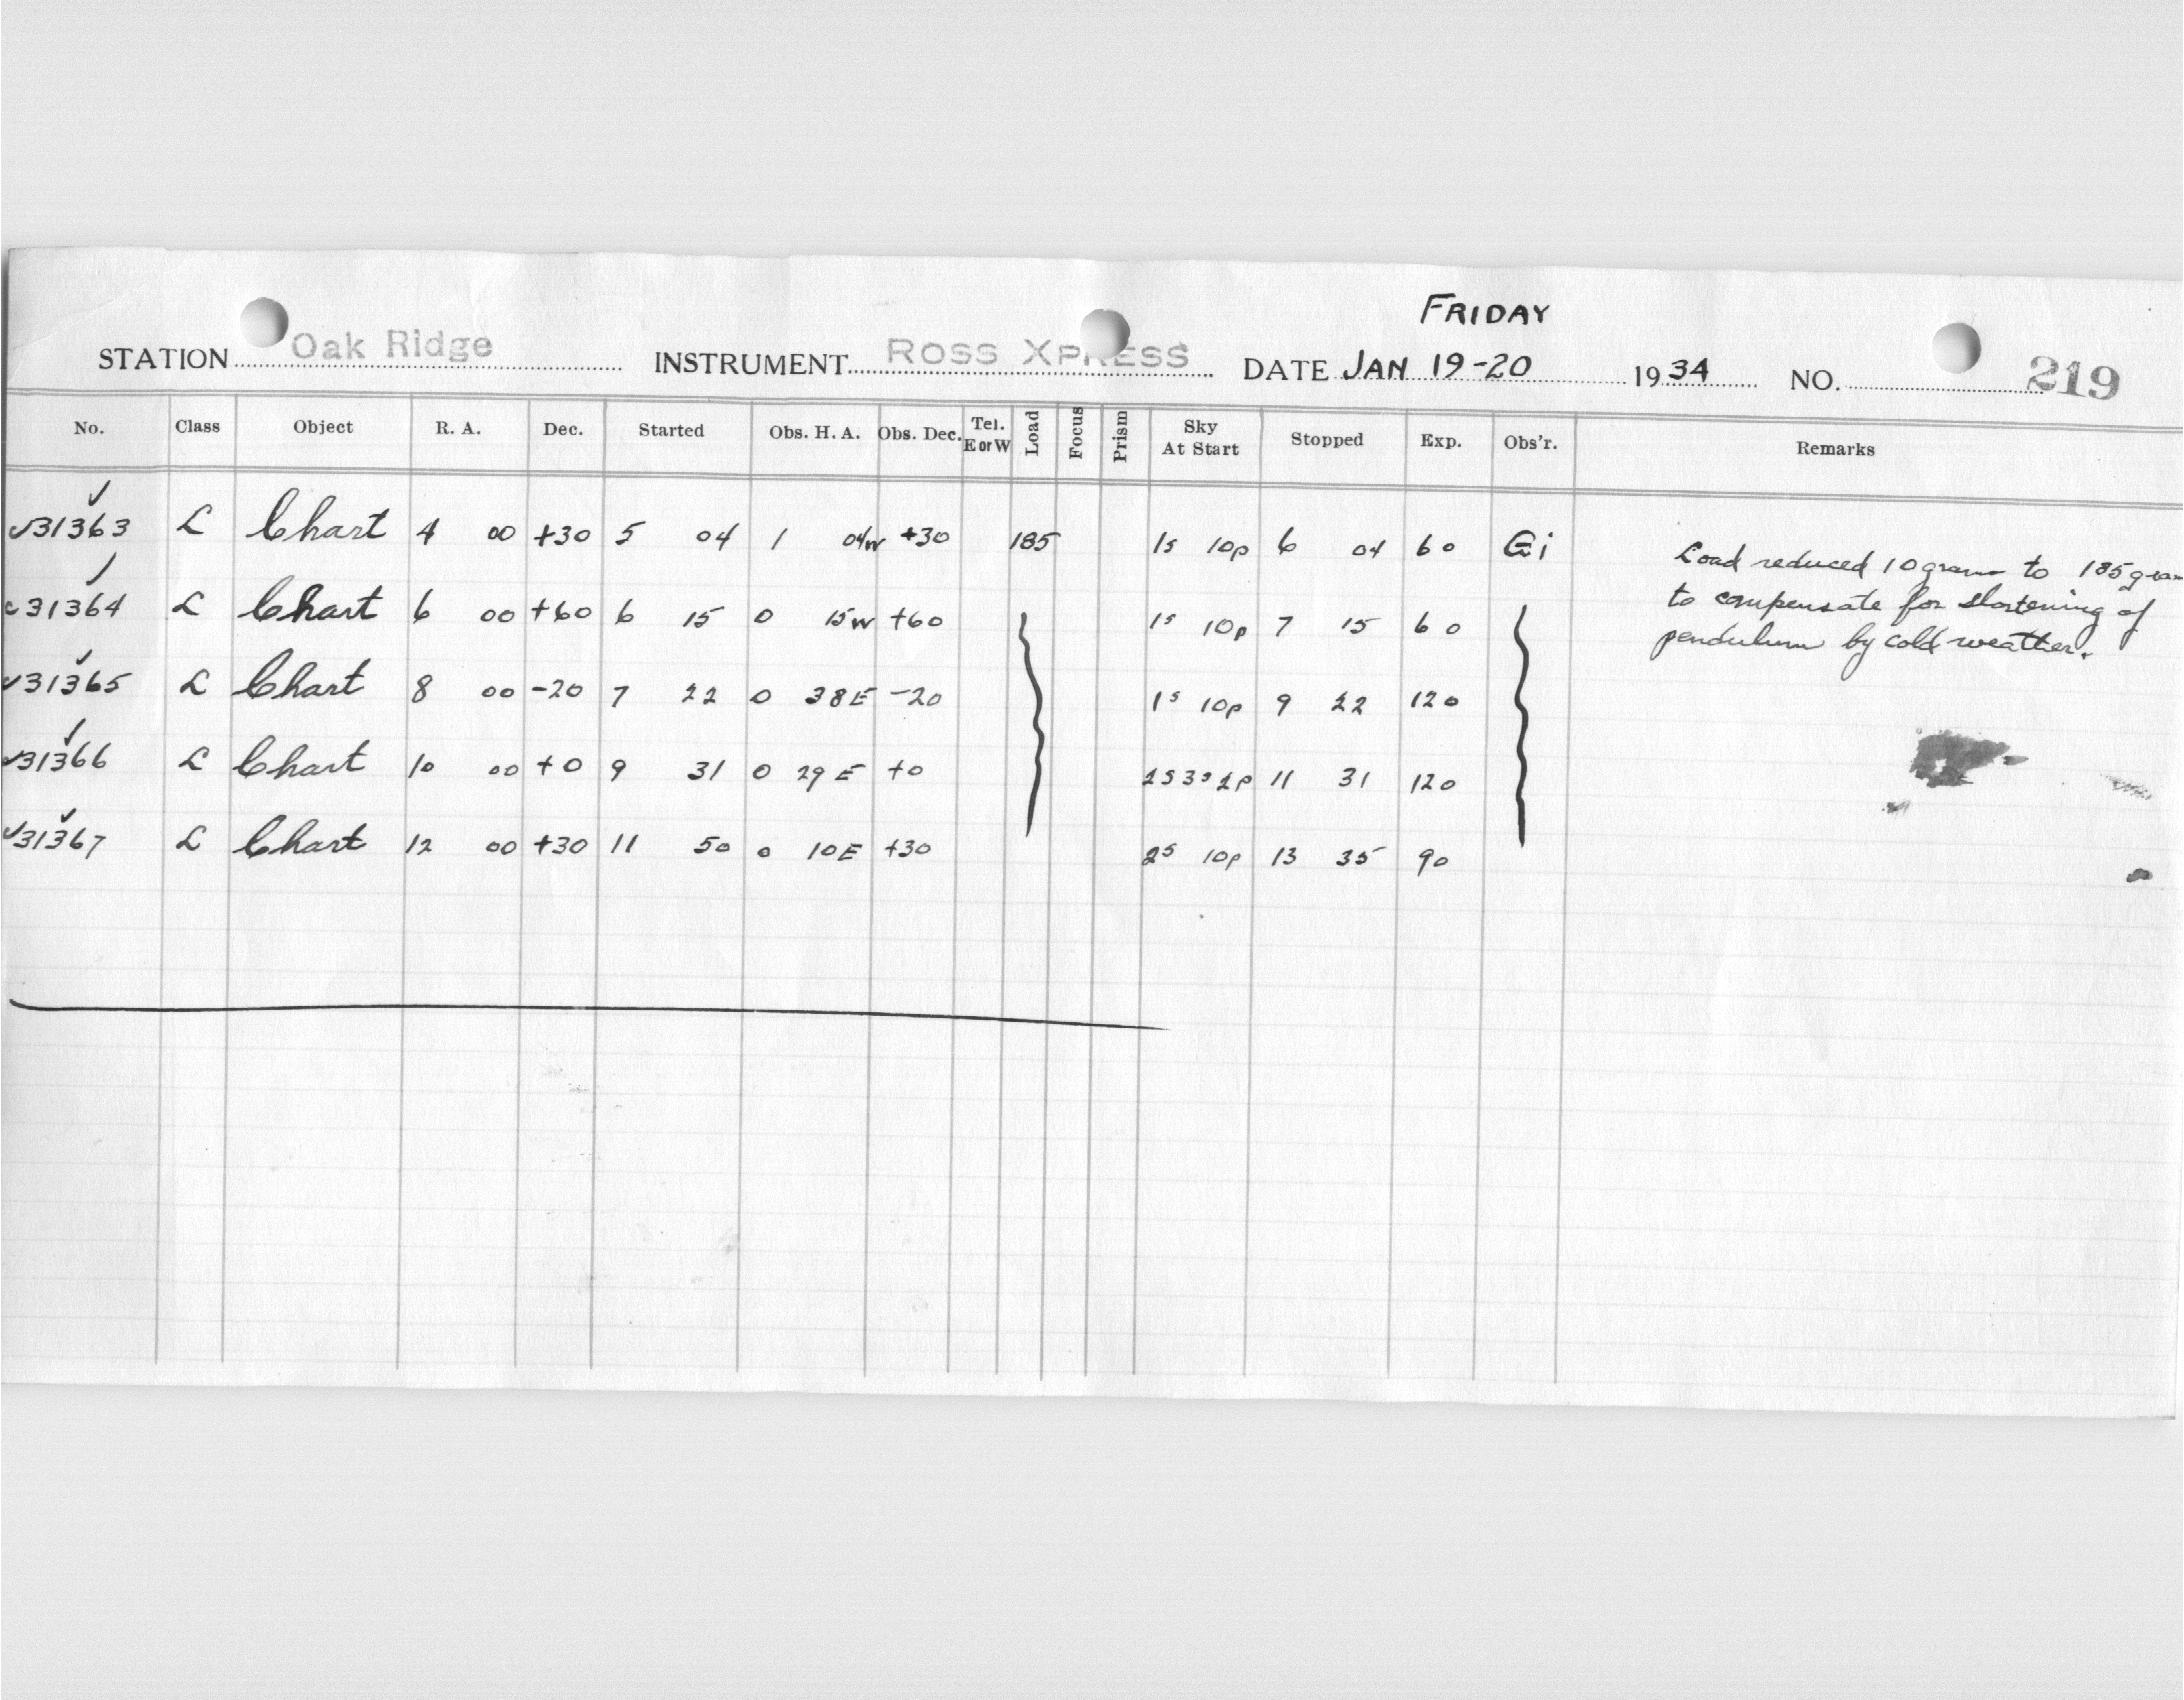 FRIDAY
STATION Oak Ridge INSTRUMENT ROSS XPRESS DATE JAN 19-20 1934 NO. 219
No. Class Object R. A. Dec. Started Obs. H. A. Obs. Dec. Tel. E or W Load Focus Prism Sky At Start Stopped Exp. Obs'r. Remarks
✓31363 ✓ L Chart 4 00 +30 5 04 1 04W +30 185 1s 10p 6 04 60 Gi
Load reduced 10 grams to 185 gram
✓31364 ✓ L Chart 6 00 +60 6 15 0 15W +60 1s 10p 7 15 60
to compensate for shortening of
pendulum by cold weather.
✓31365 ✓ L Chart 8 00 -20 7 22 0 38E -20 1s 10p 9 22 120
✓31366 ✓ L Chart 10 00 +0 9 31 0 29E +0 11 31 120
✓31367 ✓ L Chart 12 00 +30 11 50 0 10E +30 2s 10p 13 35 90